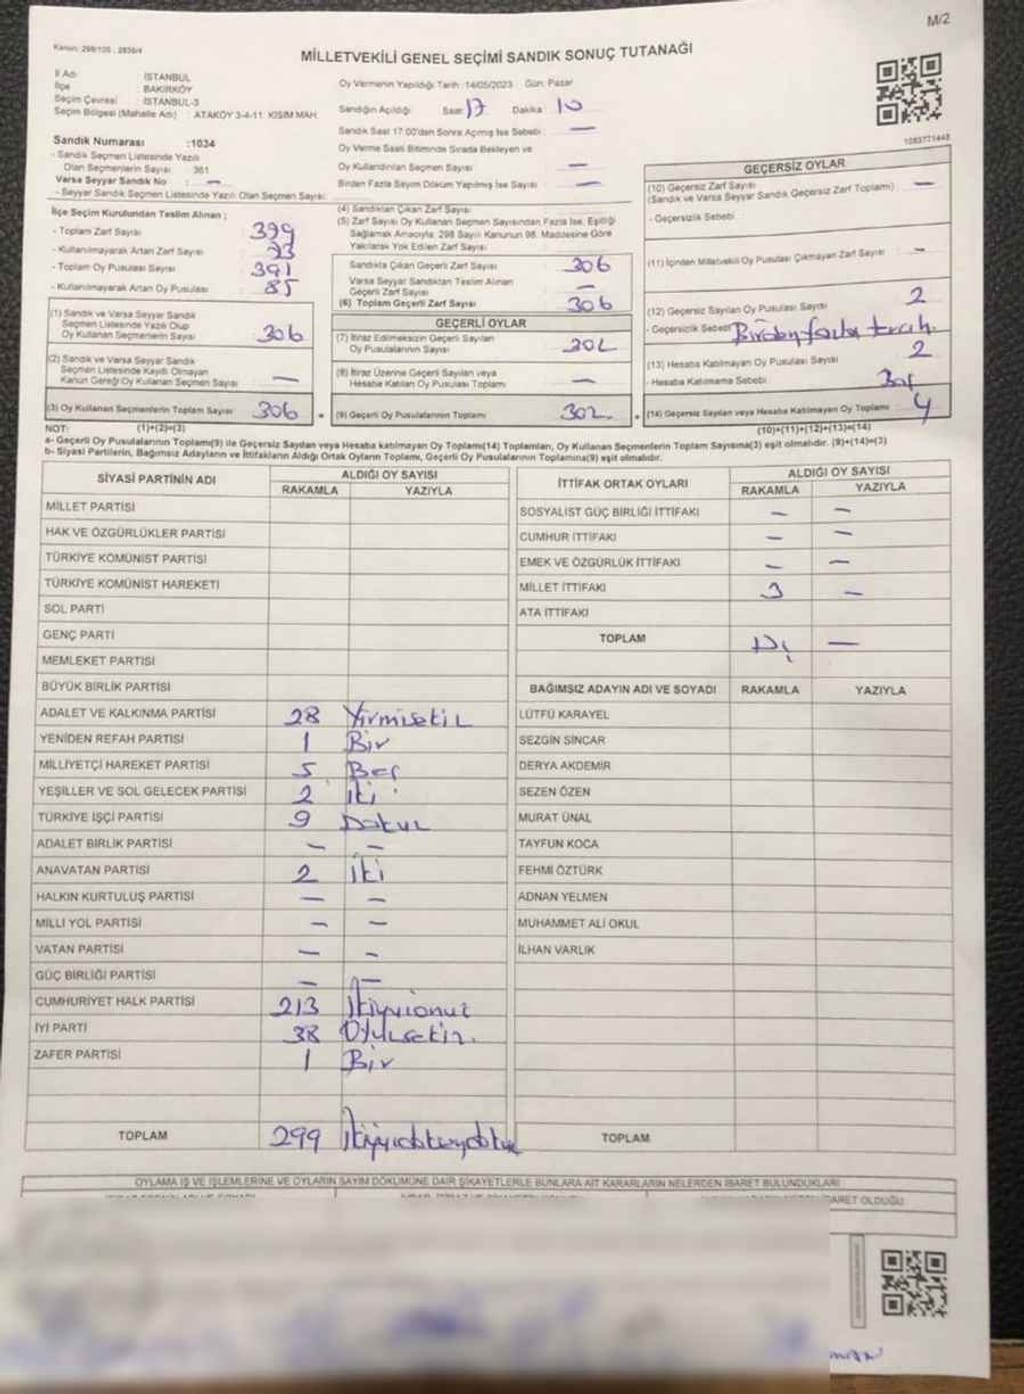 M/2
Kanun: 298/105 ; 2839/4
MİLLETVEKİLİ GENEL SEÇİMİ SANDIK SONUÇ TUTANAĞI
İl Adı İSTANBUL
İlçe BAKIRKÖY
Seçim Çevresi İSTANBUL-3
Seçim Bölgesi (Mahalle Adı) : ATAKÖY 3-4-11. KISIM MAH.
Oy Vermenin Yapıldığı Tarih :14/05/2023 Gün: Pazar
Sandığın Açıldığı Saat 17 Dakika 10
Sandık Saat 17:00'den Sonra Açılmış İse Sebebi : —
Oy Verme Saati Bitiminde Sırada Bekleyen ve
Oy Kullandırılan Seçmen Sayısı —
Birden Fazla Sayım Döküm Yapılmış İse Sayısı —
Sandık Numarası :1034
- Sandık Seçmen Listesinde Yazılı
Olan Seçmenlerin Sayısı 361
Varsa Seyyar Sandık No : —
- Seyyar Sandık Seçmen Listesinde Yazılı Olan Seçmen Sayısı:
İlçe Seçim Kurulundan Teslim Alınan ;
- Toplam Zarf Sayısı 399
- Kullanılmayarak Artan Zarf Sayısı 93
- Toplam Oy Pusulası Sayısı 391
- Kullanılmayarak Artan Oy Pusulası 85
(1) Sandık ve Varsa Seyyar Sandık
Seçmen Listesinde Yazılı Olup
Oy Kullanan Seçmenlerin Sayısı 306
(2) Sandık ve Varsa Seyyar Sandık
Seçmen Listesinde Kaydı Olmayan
Kanun Gereği Oy Kullanan Seçmen Sayısı —
(3) Oy Kullanan Seçmenlerin Toplam Sayısı 306
(4) Sandıktan Çıkan Zarf Sayısı
(5) Zarf Sayısı Oy Kullanan Seçmen Sayısından Fazla İse, Eşitliği
Sağlamak Amacıyla; 298 Sayılı Kanunun 98. Maddesine Göre
Yakılarak Yok Edilen Zarf Sayısı
Sandıkta Çıkan Geçerli Zarf Sayısı 306
Varsa Seyyar Sandıktan Teslim Alınan
Geçerli Zarf Sayısı —
(6) Toplam Geçerli Zarf Sayısı 306
GEÇERLİ OYLAR
(7) İtiraz Edilmeksizin Geçerli Sayılan
Oy Pusulalarının Sayısı 302
(8) İtiraz Üzerine Geçerli Sayılan veya
Hesaba Katılan Oy Pusulası Toplamı —
(9) Geçerli Oy Pusulalarının Toplamı 302
1083771448
GEÇERSİZ OYLAR
(10) Geçersiz Zarf Sayısı —
(Sandık ve Varsa Seyyar Sandık Geçersiz Zarf Toplamı)
- Geçersizlik Sebebi
(11) İçinden Milletvekili Oy Pusulası Çıkmayan Zarf Sayısı —
(12) Geçersiz Sayılan Oy Pusulası Sayısı 2
- Geçersizlik Sebebi Birden fazla tercih.
(13) Hesaba Katılmayan Oy Pusulası Sayısı 2
- Hesaba Katılmama Sebebi Boş
(14) Geçersiz Sayılan veya Hesaba Katılmayan Oy Toplamı 4
NOT: (1)+(2)=(3)
(10)+(11)+(12)+(13)=(14)
a- Geçerli Oy Pusulalarının Toplamı(9) ile Geçersiz Sayılan veya Hesaba katılmayan Oy Toplamı(14) Toplamları, Oy Kullanan Seçmenlerin Toplam Sayısına(3) eşit olmalıdır. (9)+(14)=(3)
b- Siyasi Partilerin, Bağımsız Adayların ve İttifakların Aldığı Ortak Oyların Toplamı, Geçerli Oy Pusulalarının Toplamına(9) eşit olmalıdır.
SİYASİ PARTİNİN ADI ALDIĞI OY SAYISI
RAKAMLA YAZIYLA
MİLLET PARTİSİ
HAK VE ÖZGÜRLÜKLER PARTİSİ
TÜRKİYE KOMÜNİST PARTİSİ
TÜRKİYE KOMÜNİST HAREKETİ
SOL PARTİ
GENÇ PARTİ
MEMLEKET PARTİSİ
BÜYÜK BİRLİK PARTİSİ
ADALET VE KALKINMA PARTİSİ 28 Yirmisekiz
YENİDEN REFAH PARTİSİ 1 Bir
MİLLİYETÇİ HAREKET PARTİSİ 5 Beş
YEŞİLLER VE SOL GELECEK PARTİSİ 2 İki
TÜRKİYE İŞÇİ PARTİSİ 9 Dokuz
ADALET BİRLİK PARTİSİ — —
ANAVATAN PARTİSİ 2 İki
HALKIN KURTULUŞ PARTİSİ — —
MİLLİ YOL PARTİSİ — —
VATAN PARTİSİ — —
GÜÇ BİRLİĞİ PARTİSİ — —
CUMHURİYET HALK PARTİSİ 213 İkiyüzonüç
İYİ PARTİ 38 Otuzsekiz.
ZAFER PARTİSİ 1 Bir
TOPLAM 299 İkiyüzdoksandokuz
İTTİFAK ORTAK OYLARI ALDIĞI OY SAYISI
RAKAMLA YAZIYLA
SOSYALİST GÜÇ BİRLİĞİ İTTİFAKI — —
CUMHUR İTTİFAKI — —
EMEK VE ÖZGÜRLÜK İTTİFAKI — —
MİLLET İTTİFAKI 3 —
ATA İTTİFAKI
TOPLAM Üç —
BAĞIMSIZ ADAYIN ADI VE SOYADI RAKAMLA YAZIYLA
LÜTFÜ KARAYEL
SEZGİN SİNCAR
DERYA AKDEMİR
SEZEN ÖZEN
MURAT ÜNAL
TAYFUN KOCA
FEHMİ ÖZTÜRK
ADNAN YELMEN
MUHAMMET ALİ OKUL
İLHAN VARLIK
TOPLAM
OYLAMA İŞ VE İŞLEMLERİNE VE OYLARIN SAYIM DÖKÜMÜNE DAİR ŞİKAYETLERLE BUNLARA AİT KARARLARIN NELERDEN İBARET BULUNDUKLARI
İBARET OLDUĞU